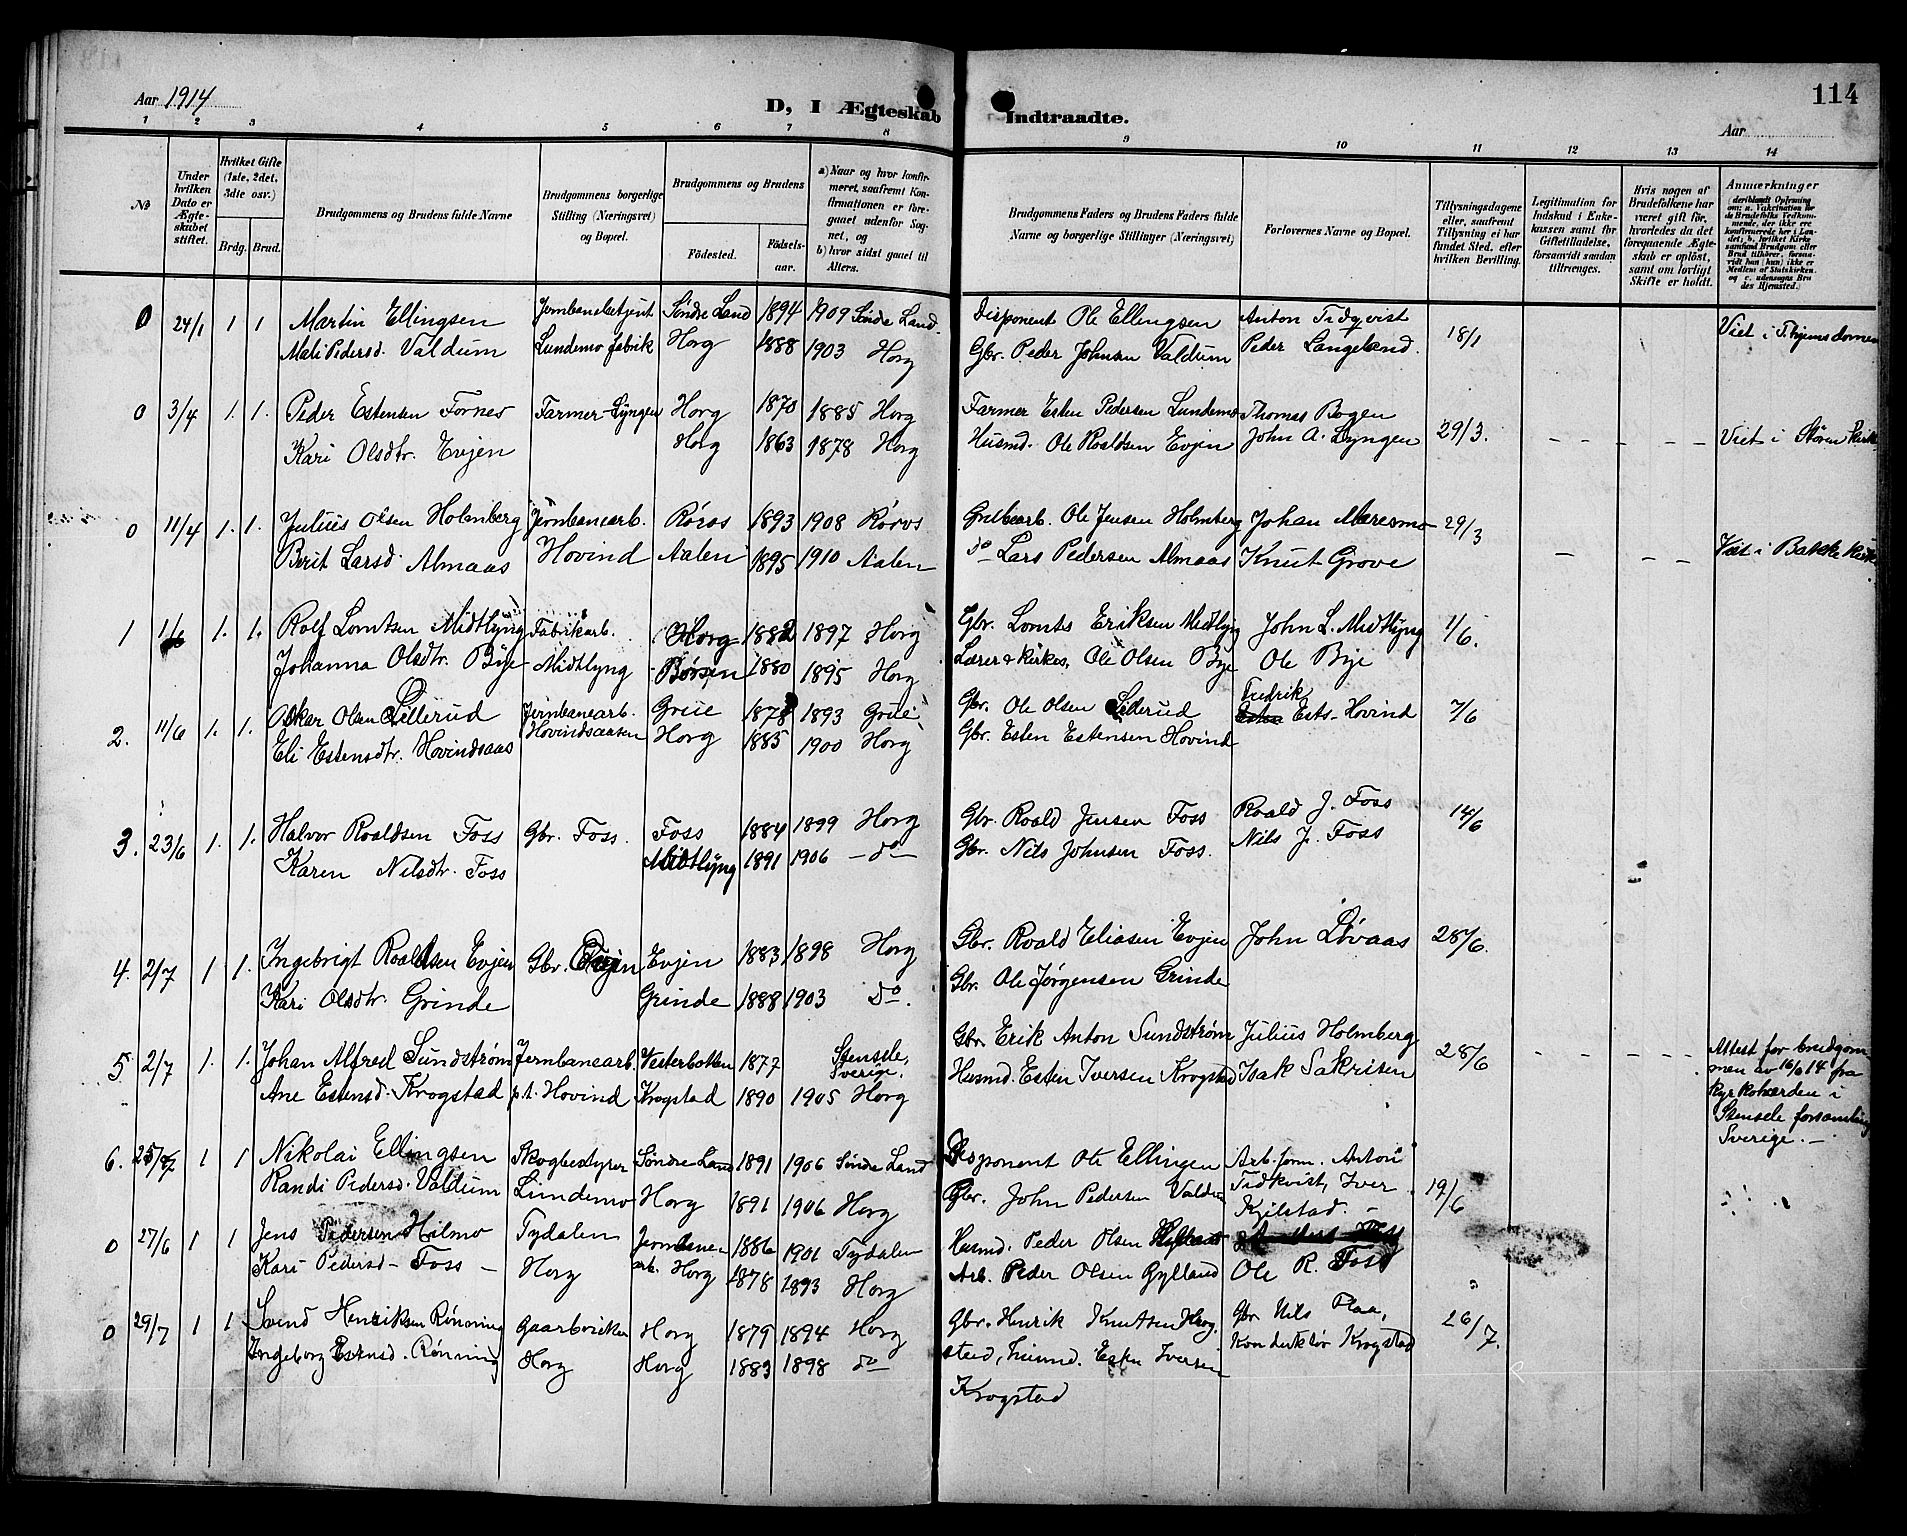 Aar 1914
D, I Ægteskab Indtraadte.
114
Aar
1 2 3 4 5 6 7 8 9 10 11 12 13 14
No
Under hvilken Dato er Ægteskabet stiftet.
Hvilket Gifte (1ste, 2det, 3die osv.)
Brdg. Brud.
Brudgommens og Brudens fulde Navne
Brudgommens borgerlige Stilling (Næringsvei) og Bopæl.
Brudgommens og Brudens
Fødested. Fødselsaar.
a) Naar og hvor konfirmeret, saafremt Konfirmationen er foregaaet udenfor Sognet, og
b) hvor sidst gaaet til Alters.
Brudgommens Faders og Brudens Faders fulde Navne og borgerlige Stillinger (Næringsvei)
Forlovernes Navne og Bopæl.
Tillysningsdagene eller, saafremt Tillysning ei har fundet Sted, efter hvilken Bevilling.
Legitimation for Indskud i Enkekassen samt for Giftetilladelse, forsaavidt saadan tiltrænges.
Hvis nogen af Brudefolkene har været gift før, hvorledes da det foregaaende Ægteskab er opløst, samt om lovligt Skifte er holdt.
Anmerkninger (deriblandt Oplysning om: a. Vaksination for de Brudefolks Vedkommende, der ikke ere konfirmerede her i Landet; b. hvilket Kirkesamfund Brudgom eller Brud tilhører, forsaavidt han (hun) ikke er Medlem af Statskirken, og c. udensogns Brudes Hjemsted.)
0 24/1 1 1 Martin Ellingsen Jernbanebetjent Søndre Land 1894 1909 Søndre Land. Disponent Ole Ellingsen Anton Tidqvist 18/1 Viet i Thjemsdomen
Mali Pedersd. Valdum Lundemo fabrik Horg 1888 1903 Horg Gbr. Peder Johnsen Valdum Peder Langeland.
0 3/4 1. 1. Peder Estensen Fornes Farmer-Lyngen Horg 1870 1885 Horg Farmer Esten Pedersen Lundemo Thomas Bogen 29/3. Viet i Støren Kirke
Kari Olsdtr. Evjen Horg 1863 1878 Horg Husmd. Ole Roaldsen Evjen John A. Lyngen
0 11/4 1. 1. Julius Olsen Holmberg Jernbanearb. Røros 1893 1908 Røros Grubearb. Ole Jensen Holmberg Johan Møresmo 29/3 Viet i Bakke Kirke
Berit Larsd. Almaas Hovind Aalen 1895 1910 Aalen do Lars Pedersen Almaas Knut Grove
1 1/6 1. 1. Rolf Lomtsen Midtlyng Fabrikarb. Horg 1882 1897 Horg Gbr. Lomts Eriksen Midtlyng John L. Midtlyng 1/6.
Johanna Olsdtr. Bye Midtlyng Børsen 1880 1895 Horg Lærer & Kirkes. Ole Olsen Bye Ole Bye
2. 11/6 1. 1. Oskar Olsen Lillerud Jernbanearb. Grue 1878 1893 Grue Gbr. Ole Olsen Lillerud Fredrik Ests-Hovind 7/6
Eli Estensdtr. Hovindsaas Hovindsaasen Horg 1885 1900 Horg Gbr. Esten Estensen Hovind
3. 23/6 1. 1. Halvor Roaldsen Foss Gbr. Foss. Foss 1884 1899 Horg Gbr. Roald Jensen Foss Roald J. Foss 14/6
Karen Nilsdtr. Foss Midtlyng 1891 1906 - do - Gbr. Nils Johnsen Foss. Nils J. Foss
4. 2/7 1 1. Ingebrigt Roaldsen Evjen Gbr. Evjen Evjen 1883 1898 Horg Gbr. Roald Eliasen Evjen John Løvaas 28/6.
Kari Olsdtr. Grinde Grinde 1888 1903 do. Gbr. Ole Jørgensen Grinde
5 2/7 1. 1. Johan Alfred Sundstrøm Jernbanearb. Vesterbotten 1877 Stensele, Sverige. Gbr. Erik Anton Sundstrøm Julius Holmberg 28/6 Attest for brudgommen av 16/6 14 fra kyrkoherden i Stensele forsamling Sverige. -
Ane Estensd. Krogstad p.t. Hovind. Krogstad 1890 1905 Horg Husmd. Esten Iversen Krogstad Isak Sakrisen
6. 25/7 1 1 Nikolai Ellingsen Skogbestyrer Søndre Land 1891 1906 Søndre Land Disponent Ole Ellingen Arb.form. Anton Tidkvist, Iver 19/6
Randi Pedersd. Valdum Lundemo Horg 1891 1906 Horg Gbr. John Pedersen Valdum Kjelstad. -
0 27/6 1 1 Jens Pedersen Hilmo Tydalen Jernbane- 1886 1901 Tydalen Husmd. Peder Olsen
Kari Pedersd - Foss - Horg arb. Horg 1878 1893 Horg Arb. Peder Olsen Gylland Ole R. Foss "
0 29/7 1 1 Svend Henriksen Rønning Gaardbruker Horg 1879 1894 Horg Gbr. Henrik Knutsen Krog- Gbr Nils Flaa, 26/7.
Ingeborg Estensd. Rønning Horg Horg 1883 1898 do stad, husmd. Esten Iversen Konduktør Krogstad
Krogstad